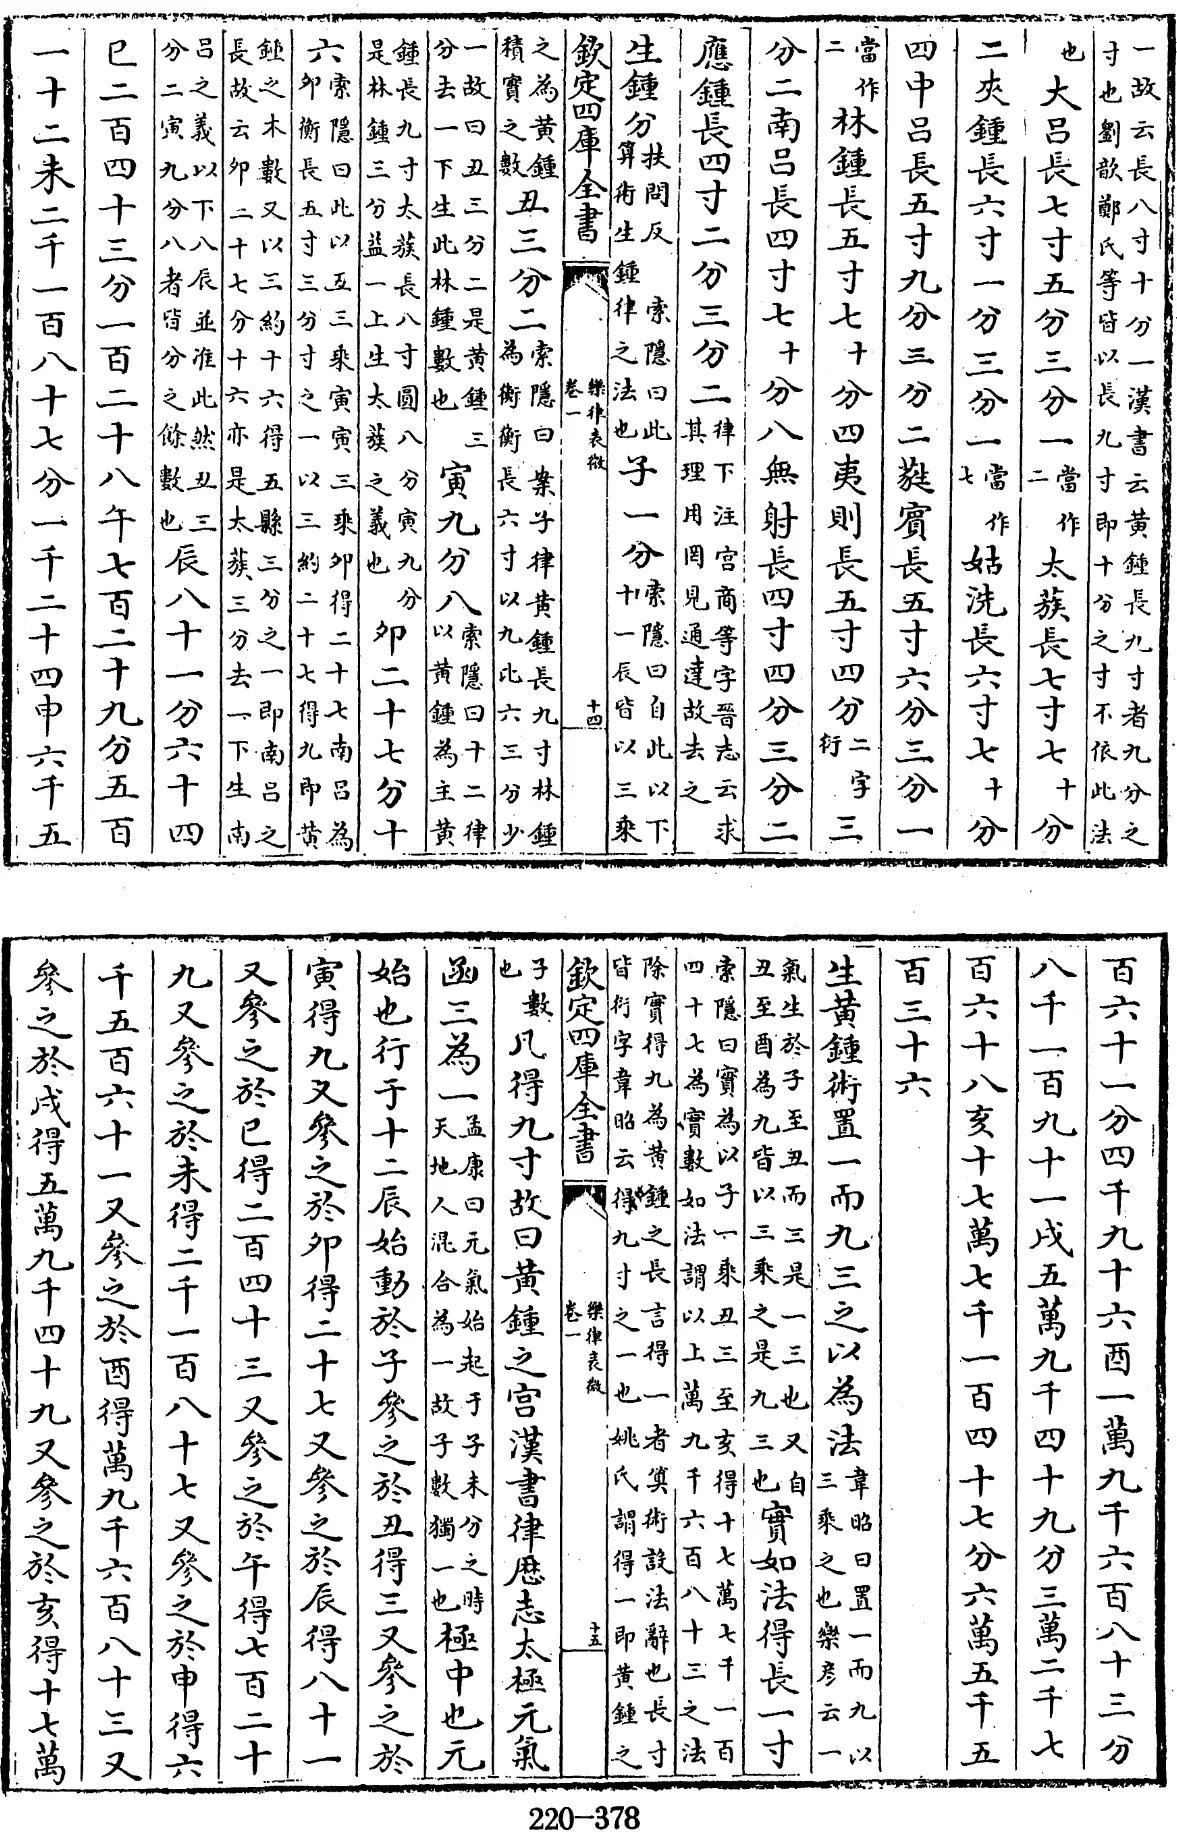 一故云長八寸十分一漢書云黃鍾長九寸者九分之
寸也劉歆鄭氏等皆以長九寸即十分之寸不依此法
也大呂長七寸五分三分一當作二太蔟長七寸七十分
二夾鍾長六寸一分三分一當作七姑洗長六寸七十分
四中呂長五寸九分三分二蕤賓長五寸六分三分一
當作二林鍾長五寸七十分四夷則長五寸四分二字衍三
分二南呂長四寸七十分八無射長四寸四分三分二
應鍾長四寸二分三分二律下注宮商等字晉志云求其理用罔見通達故去之
生鍾分扶問反索隱曰此算術生鍾律之法也子一分索隱曰自此以下十一辰皆以三乘
欽定四庫全書 樂律表微 卷一 十四
之為黃鍾積實之數丑三分二索隱曰案子律黃鍾長九寸林鍾為衡衡長六寸以九比六三分少
一故曰丑三分二是黃鍾三分去一下生此林鍾數也寅九分八索隱曰十二律以黃鍾為主黃
鍾長九寸太蔟長八寸圓八分寅九分是林鍾三分益一上生太蔟之義也卯二十七分十
六索隱曰此以丑三乘寅寅三乘卯得二十七南呂為卯衡長五寸三分寸之一以三約二十七得九即黃
鍾之木數又以三約十六得五縣三分之一即南呂之長故云卯二十七分十六亦是太蔟三分去一下生南
呂之義以下八辰並准此然丑三分二寅九分八者皆分之餘數也辰八十一分六十四
巳二百四十三分一百二十八午七百二十九分五百
一十二未二千一百八十七分一千二十四申六千五
百六十一分四千九十六酉一萬九千六百八十三分
八千一百九十一戌五萬九千四十九分三萬二千七
百六十八亥十七萬七千一百四十七分六萬五千五
百三十六
生黃鍾術置一而九三之以為法韋昭曰置一而九以三乘之也樂彥云一
氣生於子至丑而三是一三也又自丑至酉為九皆以三乘之是九三也實如法得長一寸
索隱曰實為以子一乘丑三至亥得十七萬七千一百四十七為實數如法謂以上萬九千六百八十三之法
除實得九為黃鍾之長言得一者算術設法辭也長寸皆衍字韋昭云得九寸之一也姚氏謂得一即黃鍾之
欽定四庫全書 樂律表微 卷一 十五
子數也凡得九寸故曰黃鍾之宮漢書律歷志太極元氣
函三為一孟康曰元氣始起于子未分之時天地人混合為一故子數獨一也極中也元
始也行于十二辰始動於子參之於丑得三又參之於
寅得九又參之於卯得二十七又參之於辰得八十一
又參之於巳得二百四十三又參之於午得七百二十
九又參之於未得二千一百八十七又參之於申得六
千五百六十一又參之於酉得萬九千六百八十三又
參之於戌得五萬九千四十九又參之於亥得十七萬
220-378